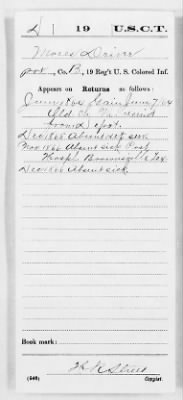 D | 19 | U.S.C.T.
Moses Driver
pvt, Co. B, 19 Reg't U. S. Colored Inf.
Appears on Returns as follows:
June 1864 Gain June 7/64
Old Ch Va recruit
from Depot.
Dec 1865 Absent sick
Nov 1866 Absent sick Post
Hospl Brownsville Tex
Dec 1866 Absent sick.
Book mark:
(546)
Copyist.